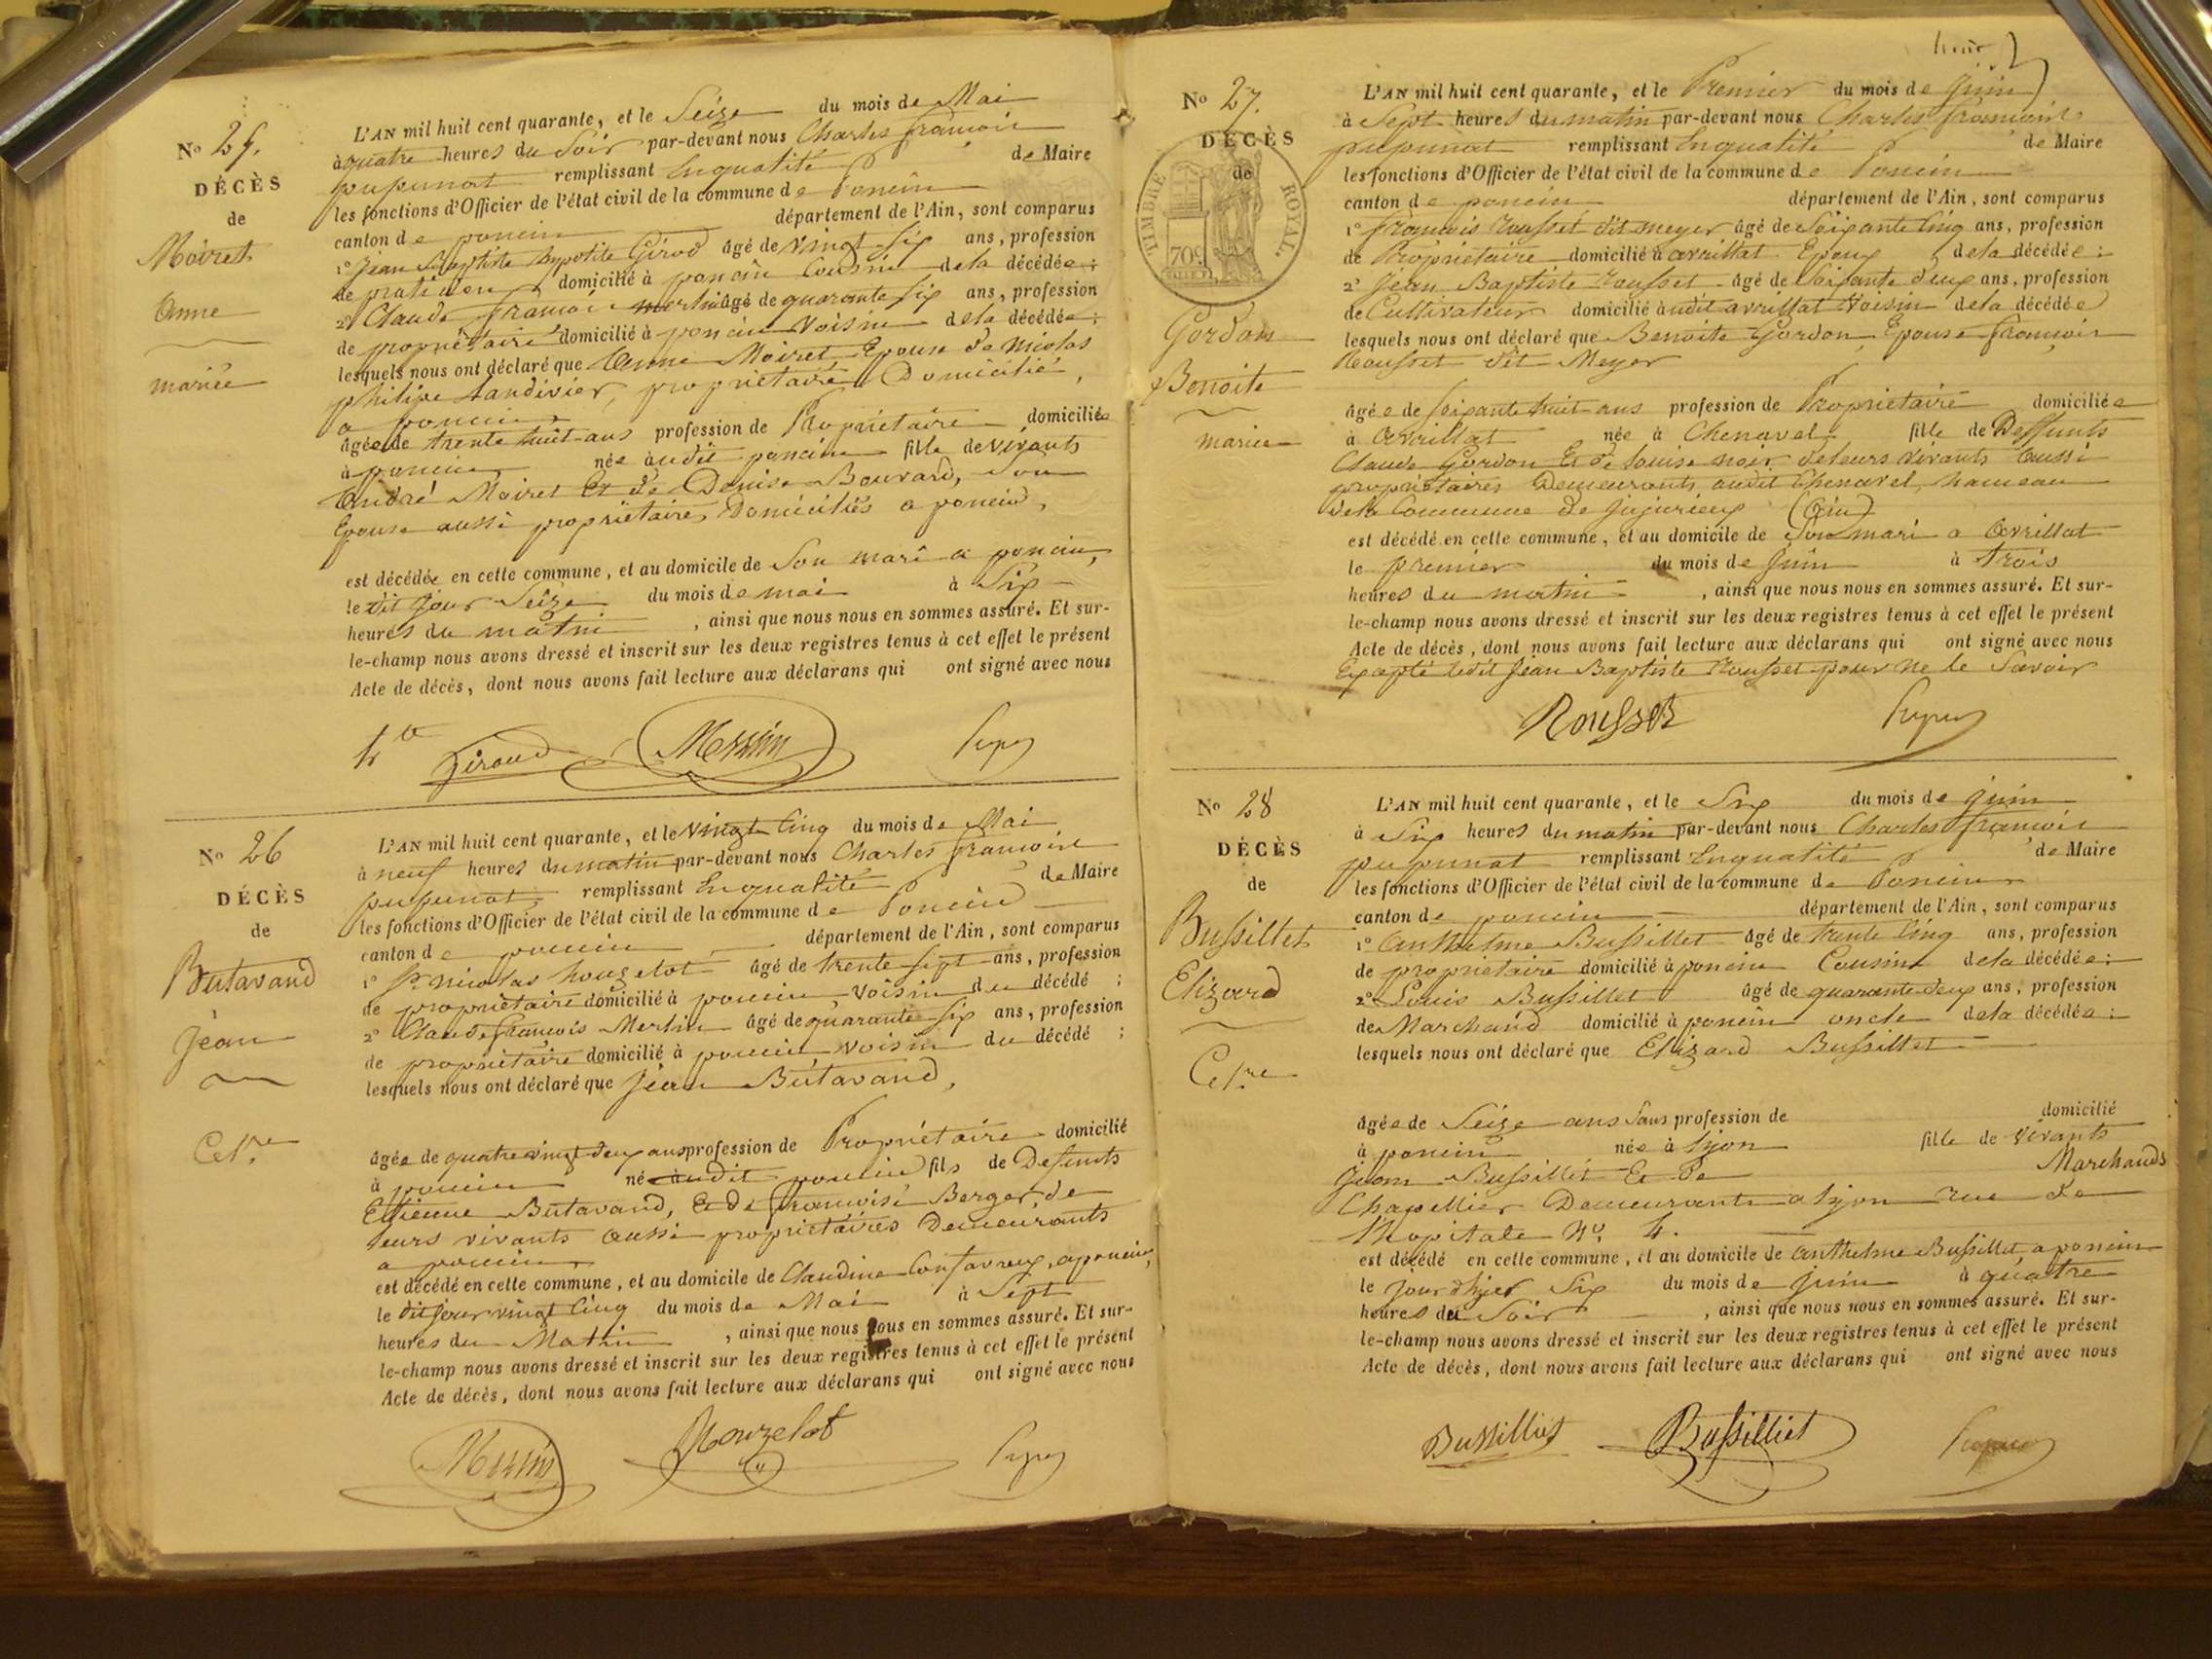 No 25.
DÉCÈS
de
Moiret
Anne
mariée
L'AN mil huit cent quarante, et le Seize du mois de Mai
à quatre heures du Soir par-devant nous Charles françois
pupunat remplissant Enqualité de Maire
les fonctions d'Officier de l'état civil de la commune de Poncin
canton de poncin département de l'Ain, sont comparus
1º Jean Baptiste hypolite Girod âgé de vingt-six ans, profession
de praticien domicilié à poncin Cousin de la décédée;
2º Claude françois merlin âgé de quarante six ans, profession
de propriétaire domicilié à poncin Voisin de la décédée;
lesquels nous ont déclaré que Anne Moiret Epouse de nicolas
philipe Landivier, propriétaire Domicilié
a poncin
âgée de trente huit ans profession de Propriétaire domiciliée
à poncin née audit poncin fille de vivants
André Moiret Et de Denise Bouvard, Son
Epouse aussi propriétaires Domiciliés a poncin,
est décédée en cette commune, et au domicile de Son mari a poncin,
le dit jour Seize du mois de mai à Six
heures du matin , ainsi que nous nous en sommes assuré. Et sur-
le-champ nous avons dressé et inscrit sur les deux registres tenus à cet effet le présent
Acte de décès, dont nous avons fait lecture aux déclarans qui ont signé avec nous
hte Giroud Merlin Pupu
No 26
DÉCÈS
de
Butavand
Jean
Cel.re
L'AN mil huit cent quarante, et le vingt cinq du mois de Mai
à neuf heures du matin par-devant nous Charles françois
pupunat remplissant Enqualité de Maire
les fonctions d'Officier de l'état civil de la commune de Poncin
canton de poncin département de l'Ain, sont comparus
1º Sr. nicolas houzelot âgé de trente sept ans, profession
de propriétaire domicilié à poncin voisin du décédé ;
2º Claude françois Merlin âgé de quarante six ans, profession
de propriétaire domicilié à poncin voisin du décédé ;
lesquels nous ont déclaré que Jean Butavand,
âgée de quatre vingt deux ans profession de Propriétaire domicilié
à poncin né audit poncin fils de Defunts
Etienne Butavand, Et de françoise Berger de
leurs vivants aussi propriétaires Demeurants
a poncin
est décédé en cette commune, et au domicile de Claudine Confavreux, a poncin,
le dit jour vingt cinq du mois de Mai à Sept
heures du Matin , ainsi que nous nous en sommes assuré. Et sur-
le-champ nous avons dressé et inscrit sur les deux registres tenus à cet effet le présent
Acte de décès, dont nous avons fait lecture aux déclarans qui ont signé avec nous
Merlin Houzelot Pupu
No 27.
DÉCÈS
de
TIMBRE ROYAL.
70c
Gordon
Benoite
mariée
L'AN mil huit cent quarante, et le Premier du mois de juin
à Sept heures du matin par-devant nous Charles françois
pupunat remplissant Enqualité de Maire
les fonctions d'Officier de l'état civil de la commune de Poncin
canton de poncin département de l'Ain, sont comparus
1º françois rousset dit meyer âgé de Soixante Cinq ans, profession
de Propriétaire domicilié à avrillat Epoux de la décédée;
2º Jean Baptiste rousset âgé de Soixante deux ans, profession
de Cultivateur domicilié à udit avrillat Voisin de la décédée
lesquels nous ont déclaré que Benoite Gordon Epouse françois
Rousset dit Meyer
âgée de soixante huit ans profession de Propriétaire domiciliée
à Avrillat née à Chenavel fille de Deffunts
Claude Gordon Et de Louise noir deleurs vivants aussi
propriétaires Demeurants audit Chenavel, hameau
de la Commune de Jujurieux (Ain)
est décédé en cette commune, et au domicile de Son mari a Avrillat
le premier du mois de juin à trois
heures du matin , ainsi que nous nous en sommes assuré. Et sur-
le-champ nous avons dressé et inscrit sur les deux registres tenus à cet effet le présent
Acte de décès, dont nous avons fait lecture aux déclarans qui ont signé avec nous
Excepté ledit Jean Baptiste Rousset pour ne le Savoir
Rousset Pupu
No 28
DÉCÈS
de
Bussillet
Elizard
Cel.re
L'AN mil huit cent quarante, et le Six du mois de juin
à Six heures du matin par-devant nous Charles françois
pupunat remplissant Enqualité de Maire
les fonctions d'Officier de l'état civil de la commune de Poncin
canton de poncin département de l'Ain, sont comparus
1º Anthelme Bussillet âgé de trente Cinq ans, profession
de propriétaire domicilié à poncin Cousin de la décédée;
2º Louis Bussillet âgé de quarante deux ans, profession
de Marchand domicilié à poncin oncle de la décédée;
lesquels nous ont déclaré que Elizard Bussillet
âgée de Seize ans Sans profession de domicilié
à poncin née à Lyon fille de vivants
Jean Bussillet Et de Marchands
Chapellier Demeurants a lyon rue de
l'hopitale No. 4.
est décédé en cette commune, et au domicile de Anthelme Bussillet a poncin
le jour d'hier Six du mois de juin à quatre
heures du Soir , ainsi que nous nous en sommes assuré. Et sur-
le-champ nous avons dressé et inscrit sur les deux registres tenus à cet effet le présent
Acte de décès, dont nous avons fait lecture aux déclarans qui ont signé avec nous
Bussilliet Bussilliet